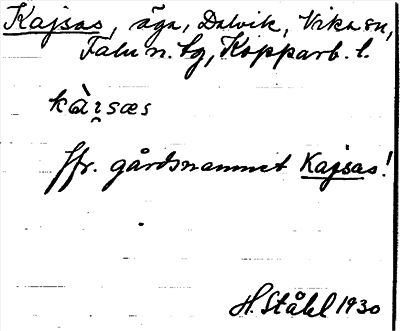 Kajsas, äga, Dalvik, Vika sn,
Falu n. tg, Kopparb. l.
kàɪ̯sæs
Jfr. gårdsnamnet Kajsas!
H. Ståhl 1930